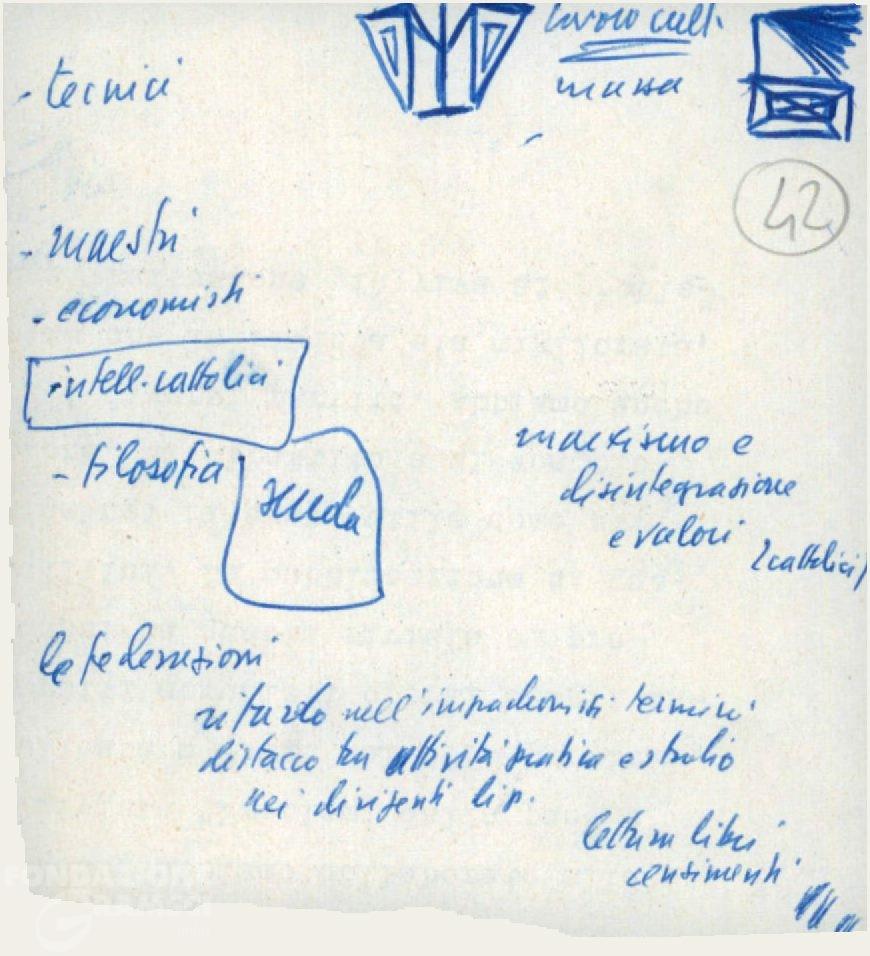 lavoro cult.
massa
- tecnici
42
- maestri
- economisti
- intell. cattolici
- filosofia
scuola
marxismo e
disintegrazione
e valori
(cattolici)
le federazioni
ritardo nell'impadronirsi termini
distacco tra attività pratica e studio
nei dirigenti
lettura libri
censimenti